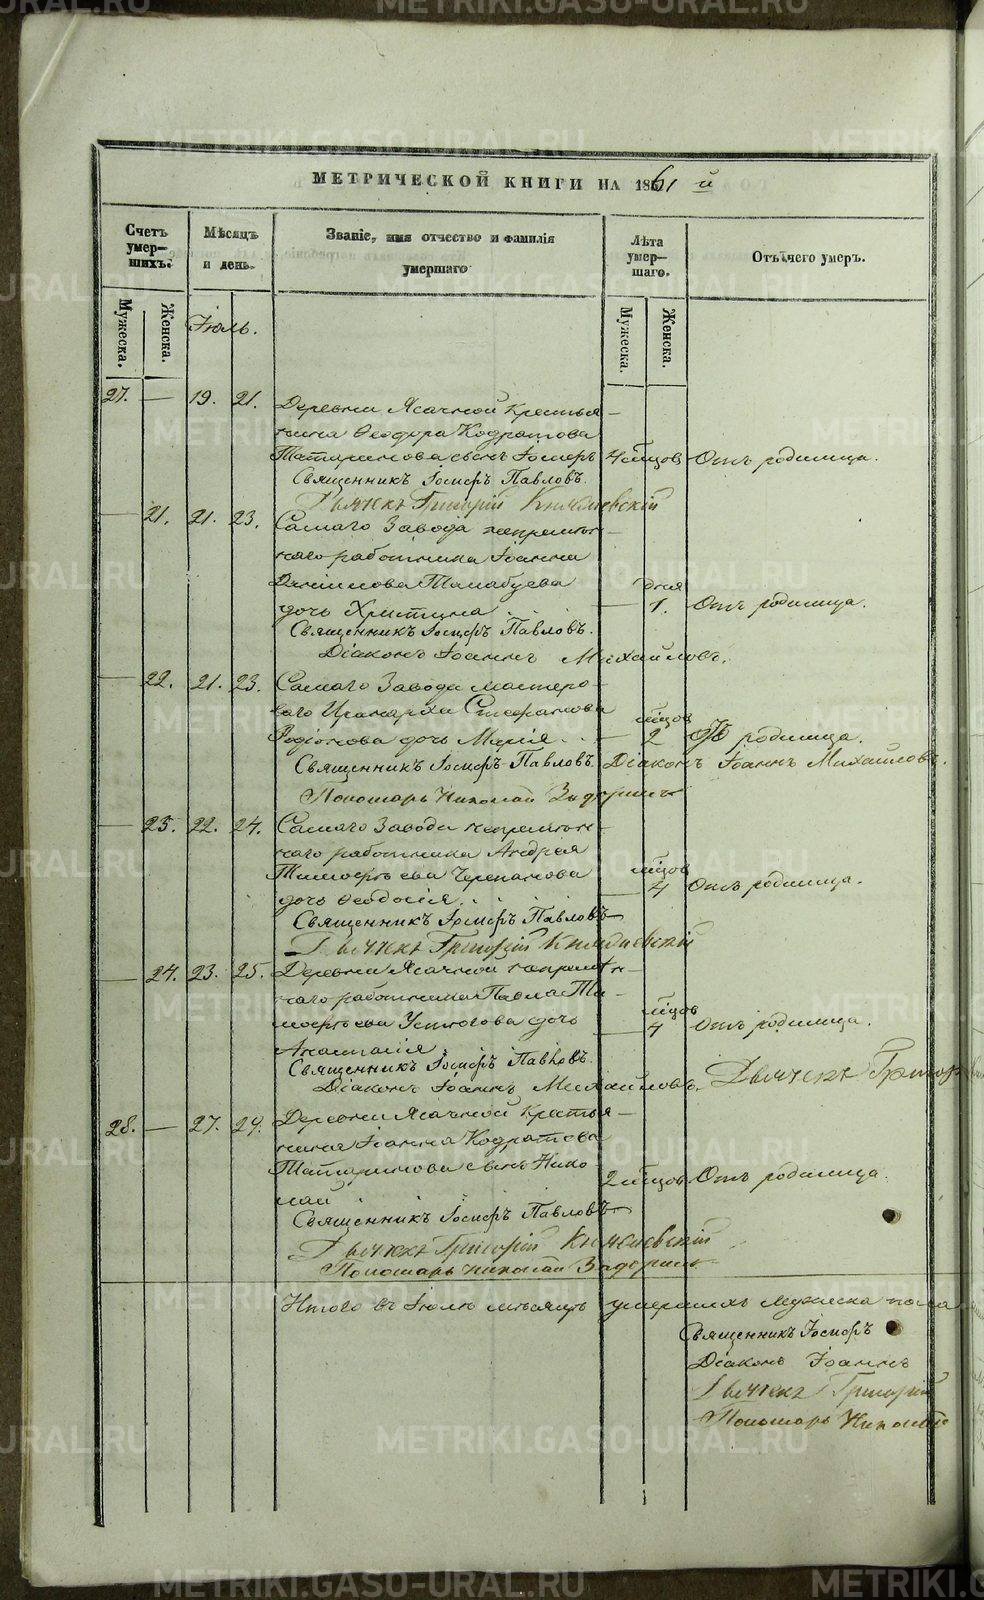 МЕТРИЧЕСКОЙ КНИГИ НА 1861 й
Счетъ умер—шихъ.
Мѣсяцъ и день.
Званіе, имя отчество и фамилія умершаго
Лѣта умер—шаго.
Отъ чего умеръ.
Мужеска.
Женска.
Іюль.
Мужеска.
Женска.
27. — 19. 21. Деревни Ясачной крестья-
нина Ѳеодора Кодратова
Татаринова сынъ Іосифъ 4 мѣсцовъ Отъ родимца.
Священникъ Іосифъ Павловъ.
Дьячекъ Григорій
— 21. 21. 23. Самаго Завода непремѣн-
наго работника Іоанна
Даніилова дня
дочь Христина — 1. Отъ родимца.
Священникъ Іосифъ Павловъ.
Діаконъ Іоаннъ Михайловъ.
— 22. 21. 23. Самаго Завода мастеро-
ваго Ираклія Стефанова мѣсцов
Родіонова дочь Марія — 2 Отъ родимца.
Священникъ Іосифъ Павловъ. Діаконъ Іоаннъ Михайловъ.
Пономарь Николай
— 23. 22. 24. Самаго Завода непремѣн-
наго работника Андрея
Тимофѣева Черепанова мѣсцов
дочь Ѳеодосія — 4 Отъ родимца.
Священникъ Іосифъ Павловъ
Дьячекъ Григорій
— 24. 23. 25. Деревни Ясачной непремѣн-
наго работника Павла Ти-
мофѣева Устюгова дочь мѣсцов 4 Отъ родимца.
Анастасія.
Священникъ Іосифъ Павловъ.
Діаконъ Іоаннъ Михайловъ. Дьячекъ Григор
28. — 27. 29. Деревни Ясачной крестья-
нина Іоанна Кодратова
Татаринова сынъ Нико- 2 мѣсцов Отъ родимца.
лай
Священникъ Іосифъ Павловъ
Дьячекъ Григорій
Пономарь Николай
Итого въ Іюлѣ мѣсяцѣ умершихъ мужеска пола
Священникъ Іосифъ
Діаконъ Іоаннъ
Дьячекъ Григорій
Пономарь Николай
METRIKI.GASO-URAL.RU